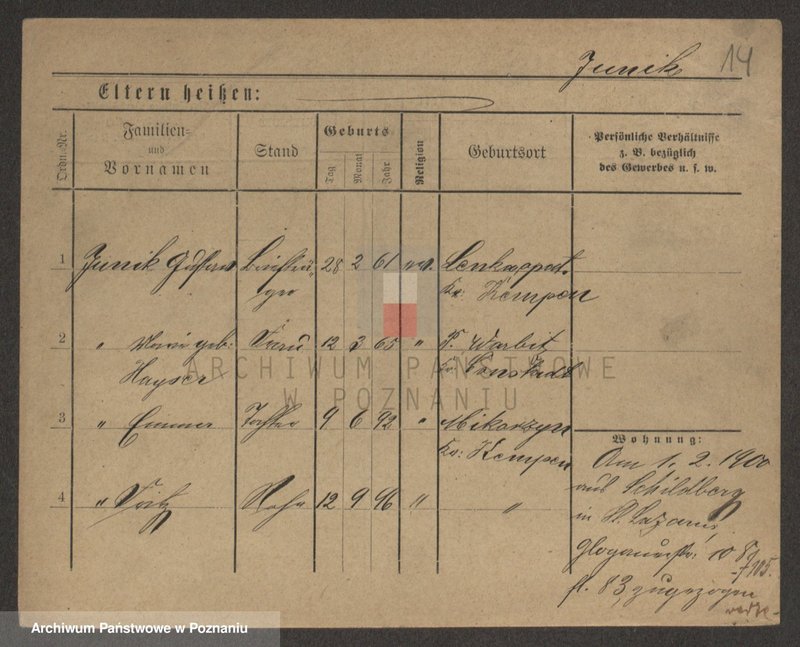 Junik 14
Eltern heißen:
Ordn.-Nr. Familien- und Vornamen Stand Geburts Tag Monat Jahr Religion Geburtsort Persönliche Verhältnisse z. B. bezüglich des Gewerbes u. s. w.
1 Junik Gustav Briefträ- 28 2 61
ger Kr. Kempen
2 " Marie geb: Frau 12 3 65 "
Hayser
3 " Emma Tochter 9 6 92 " Mikorzyn
Kr: Kempen
4 " Fritz Sohn 12 9 96 " "
Wohnung:
Am 1. 2. 1900
aus Schildberg
in St. Lazarus
Glogauerstr: 10
zugezogen
ARCHIWUM PAŃSTWOWE
W POZNANIU
Archiwum Państwowe w Poznaniu